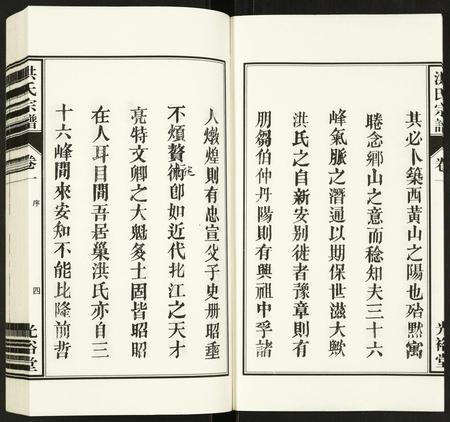 洪氏宗譜
卷一
其必卜築西黃山之陽也殆默寓
睠念鄉山之意而稔知夫三十六
峰氣脈之潛通以期保世滋大歟
洪氏之自新安別徙者豫章則有
朋芻伯仲丹陽則有興祖中孚諸
光裕堂
洪氏宗譜
卷一
序
四
人燉煌則有忠宣父子史册昭垂
不煩贅術即如近代北江之天才
亮特文卿之大魁多士固皆昭昭
在人耳目間吾居巢洪氏亦自三
十六峰間來安知不能比隆前哲
光裕堂